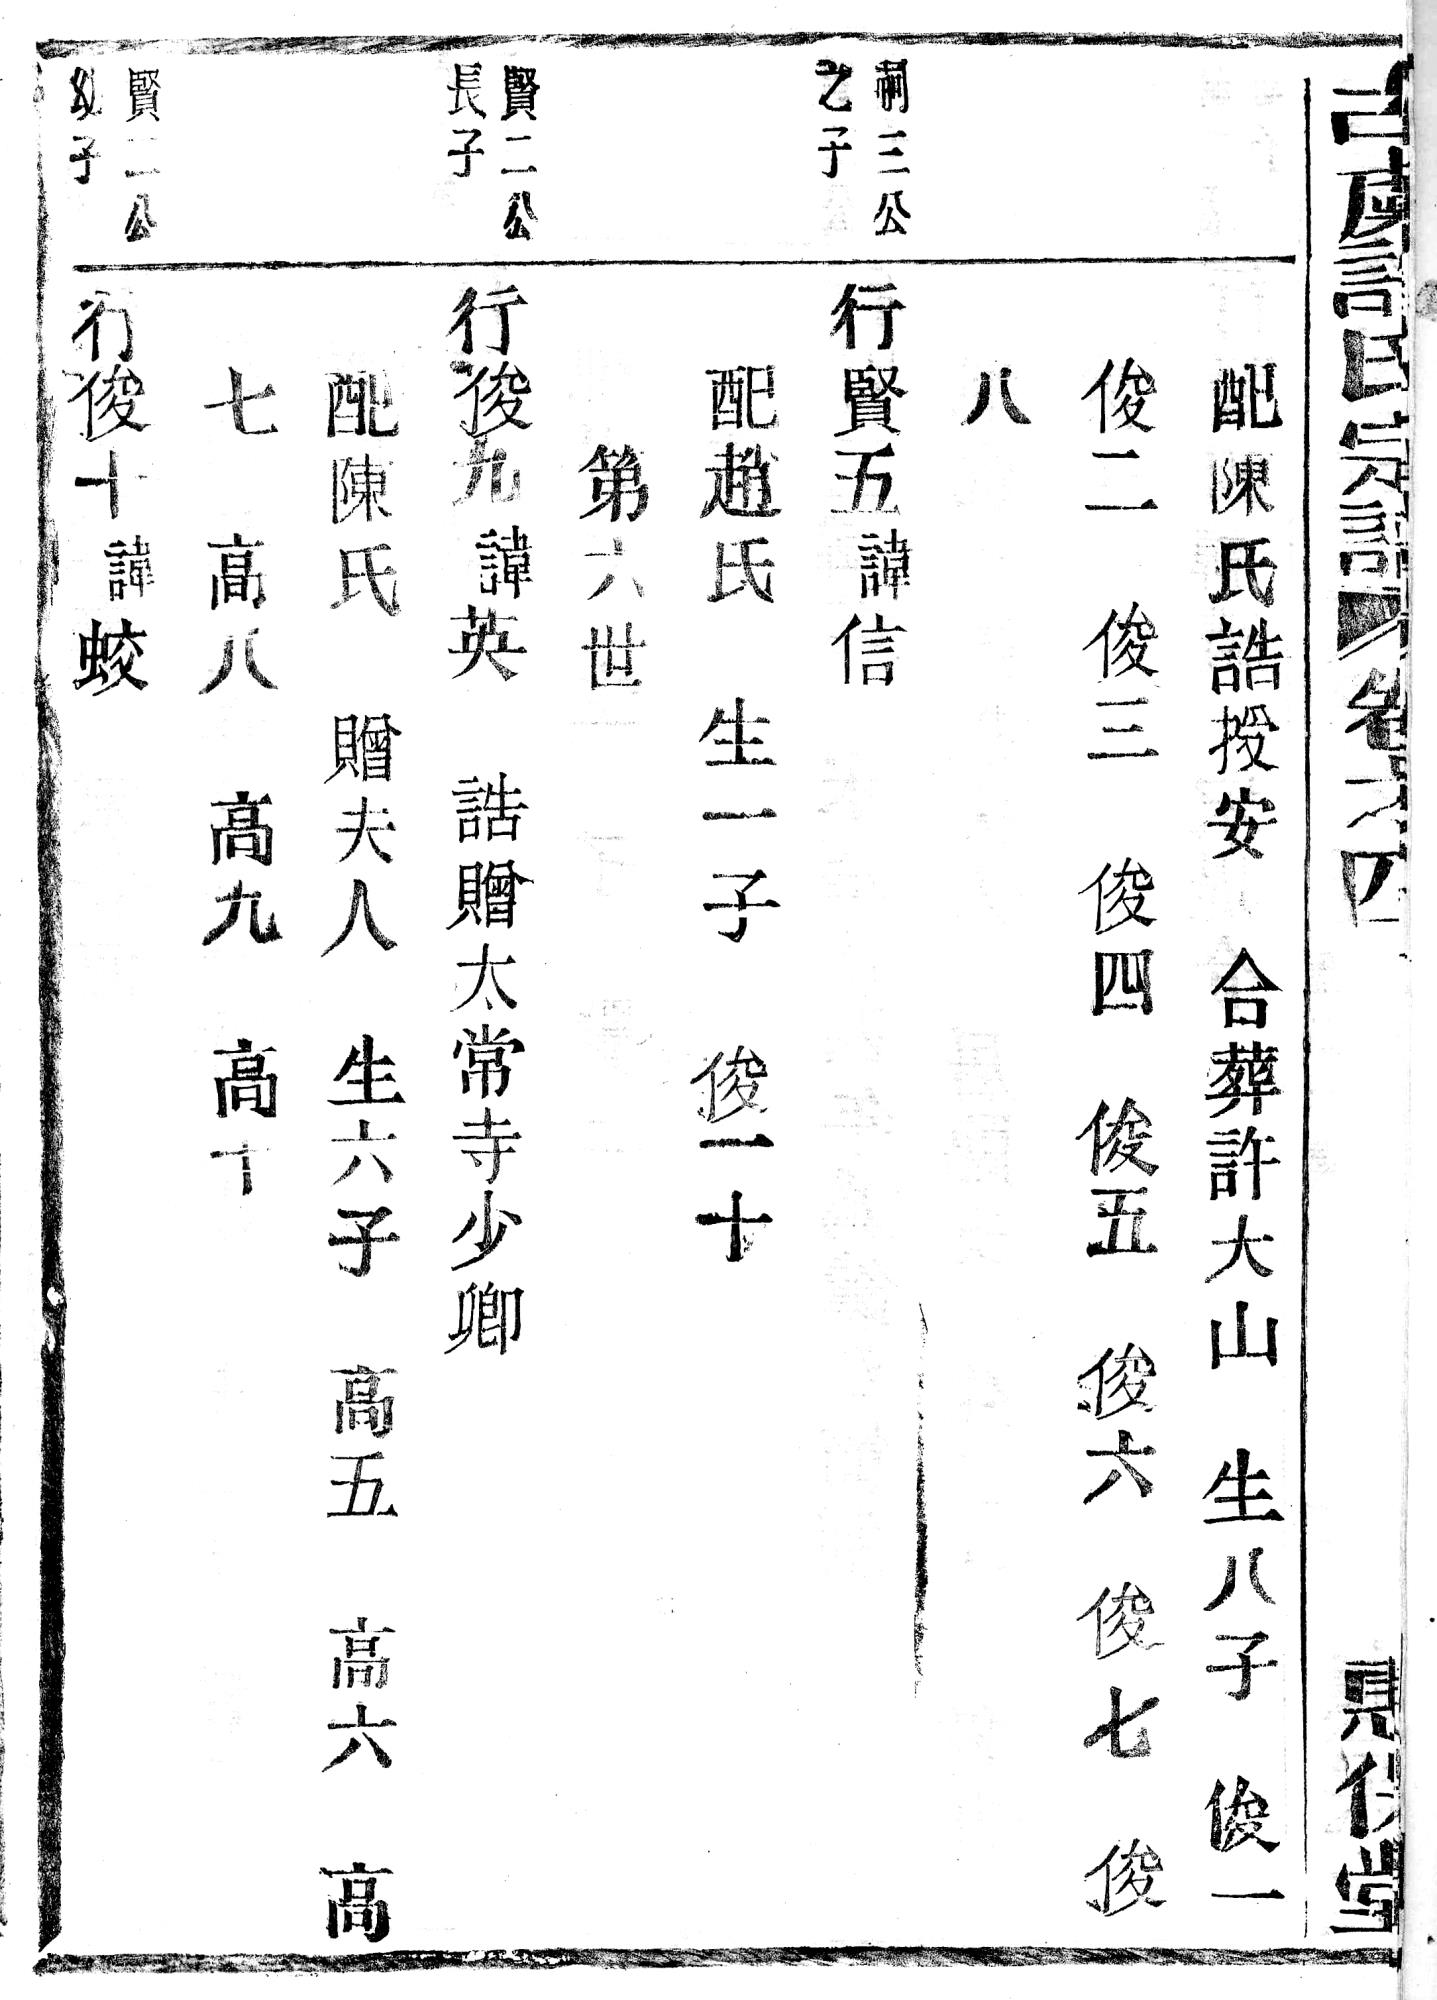 古虞許氏宗譜 卷之四
配陳氏誥授安 合葬許大山 生八子 俊一
俊二 俊三 俊四 俊五 俊六 俊七 俊
八
祠三公
之子
行賢五諱信
配趙氏 生一子 俊一十
第六世
賢二公
長子
行俊九諱英 誥贈太常寺少卿
配陳氏 贈夫人 生六子 高五 高六 高
七 高八 高九 高十
賢二公
幼子
行俊十諱蛟